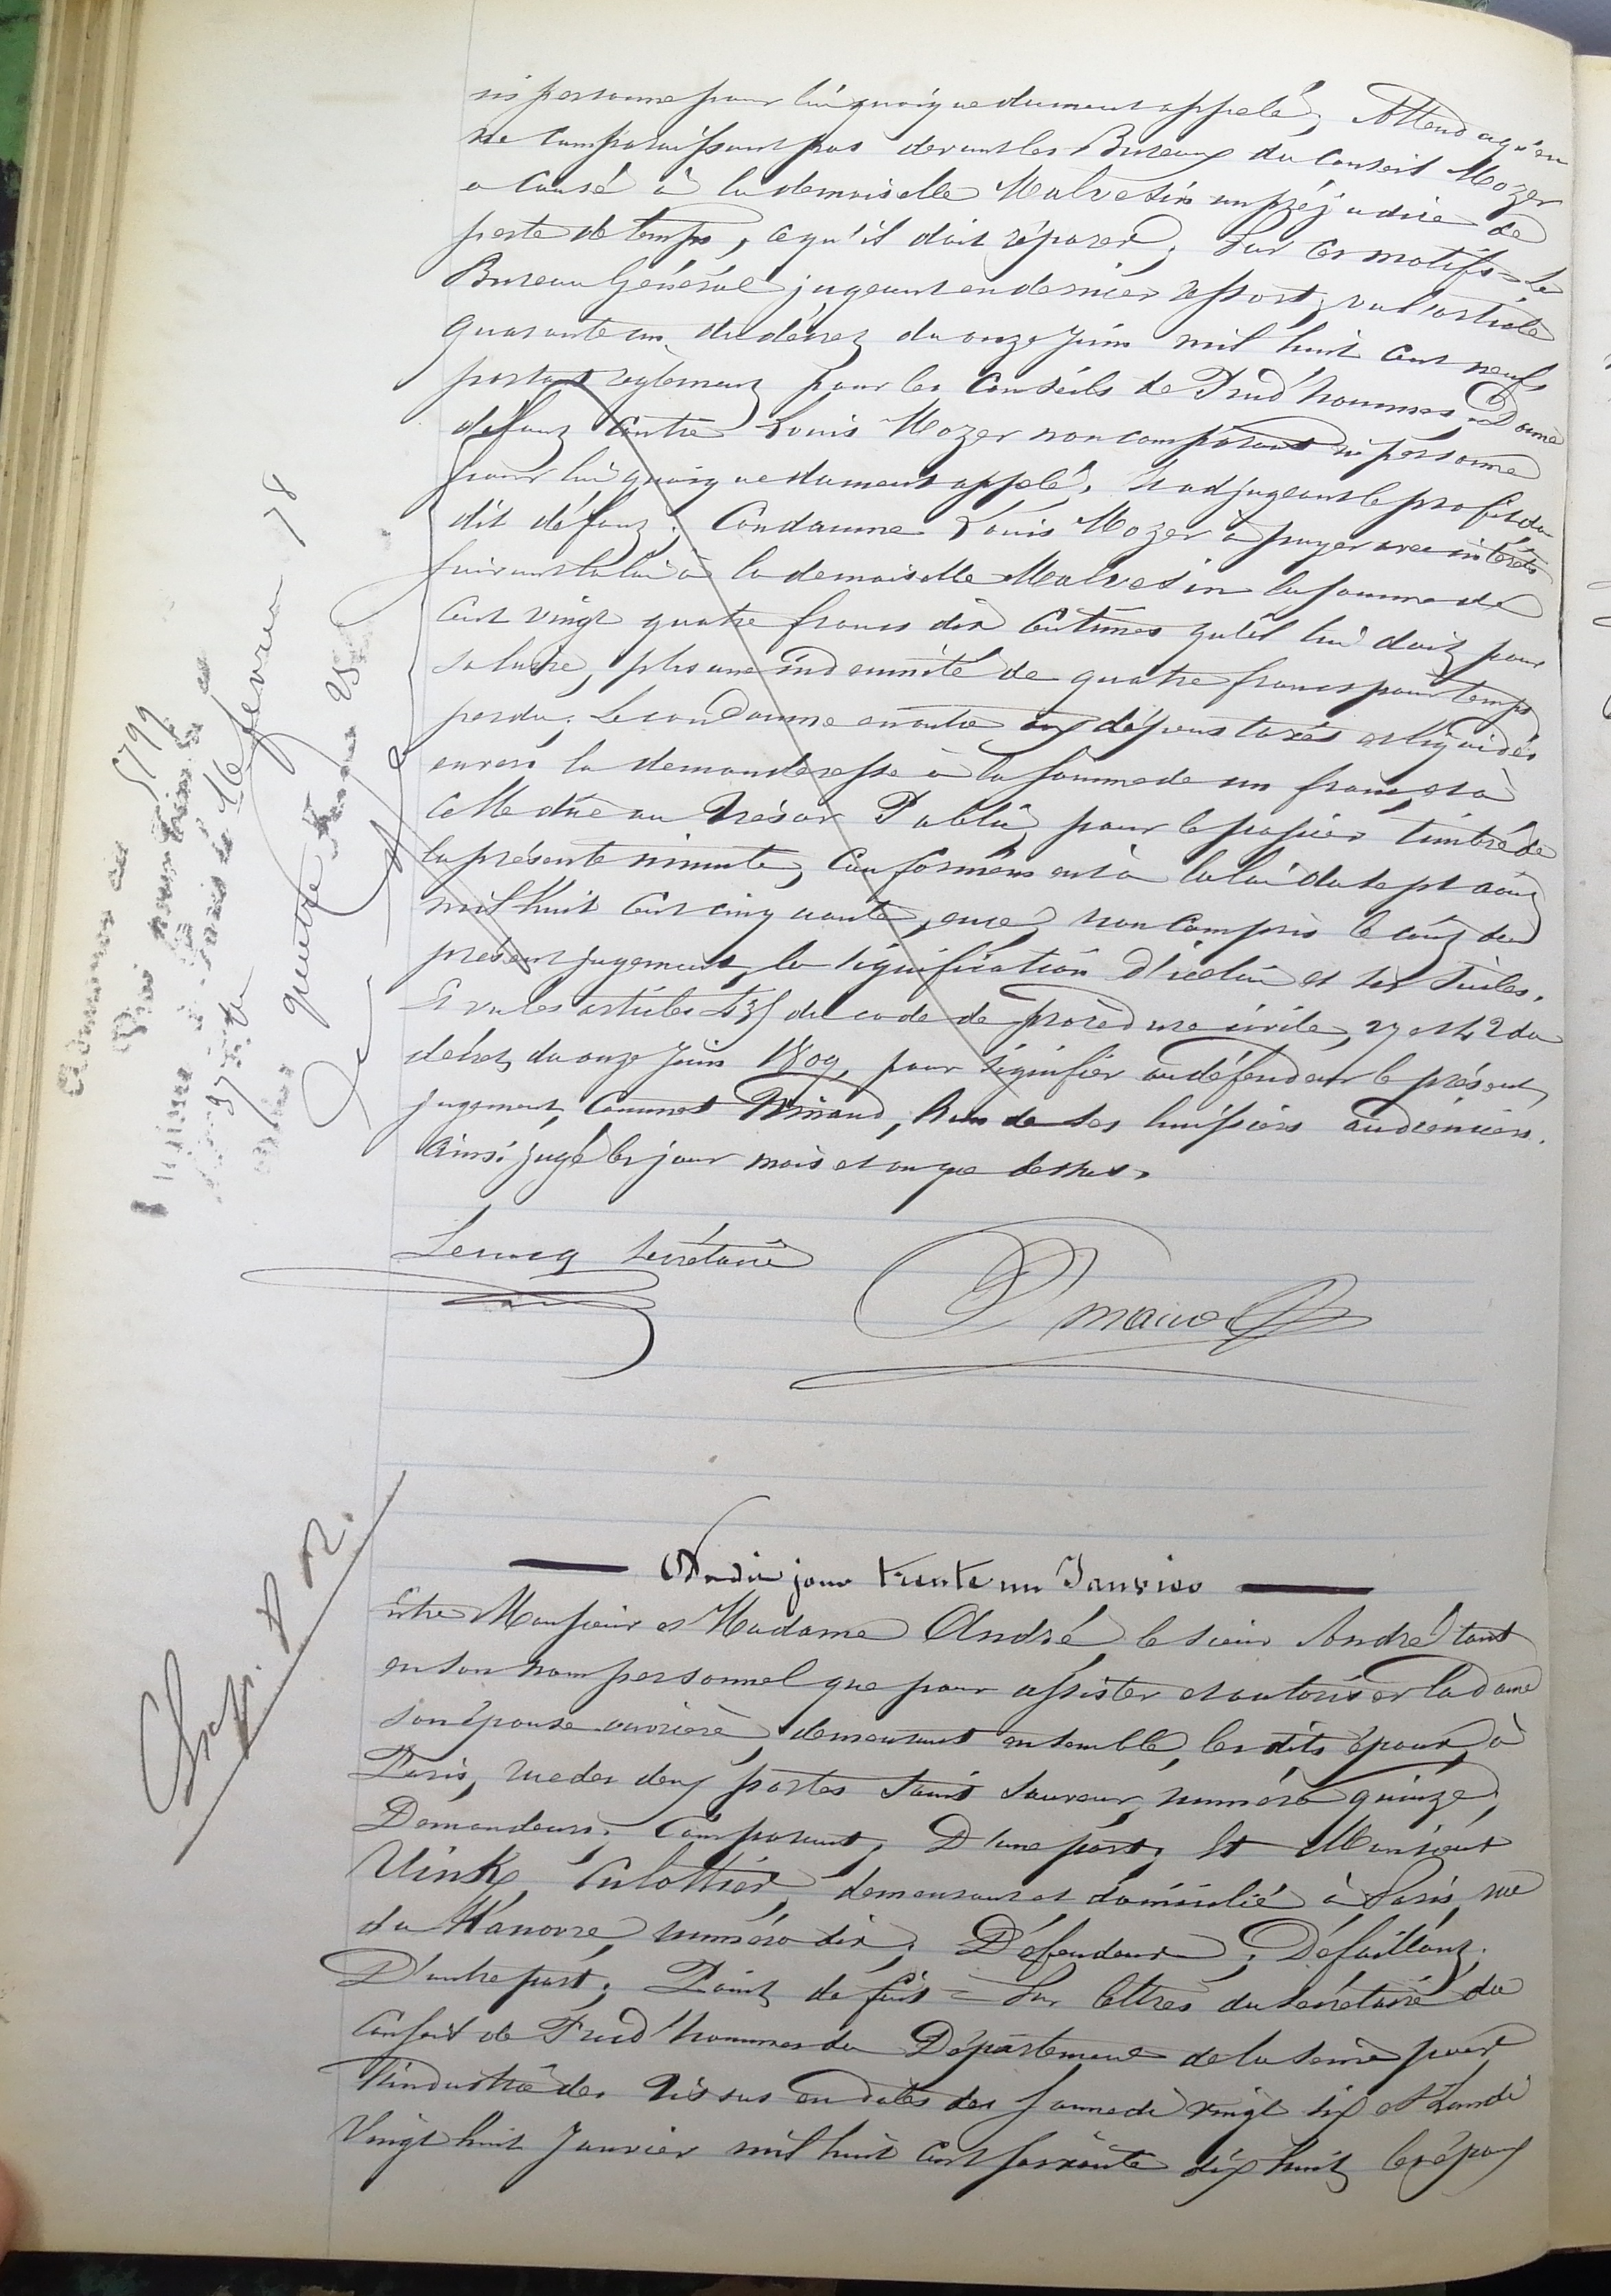 ni personne pour lui quoique dument appelé; Attendu qu'en
ne comparaissant pas devant les Bureaux du Conseil Mozer
a causé à la demoiselle Malvesin un préjudice de
perte de temps, ce qu'il doit réparer; Par ces motifs = Le
Bureau Général jugeant en dernier ressort; vu l'article
quarante un du décret du onze Juin mil huit cent neuf
portant règlement pour les Conseils de Prud'hommes; Donne
défaut contre Louis Mozer non comparant ni personne
pour lui quoique dument appelé; Et adjugeant le profit du
dit défaut; Condamne Louis Mozer à payer avec intérêts
suivant la loi à la demoiselle Malvesin la somme de
cent vingt quatre francs dix centimes qu'il lui doit pour
salaire, plus une indemnité de quatre francs pour temps
perdu; Le condamne en outre aux dépens taxés et liquidés
envers la demanderesse à la somme de un franc, et à
celle due au Trésor Public, pour le papier timbré de
la présente minute, conformément à la loi du sept août
mil huit cent cinquante, ence non compris le coût du
présent jugement, la signification d'icelui et ses suites.
Et vu les articles 435 du code de procédure civile, 27 et 42 du
décret du onze Juin 1809, pour signifier au défendeur le présent
jugement, commet , l'un de ses huissiers audienciers.
Ainsi jugé les jour mois et an que dessus.
Lecucq secrétaire
5799
16 fevrier 78
quatre
Du dit jour trente un Janvier
Entre Monsieur et Madame André, le sieur André tant
en son nom personnel que pour assister et autoriser la dame
son épouse ouvrière demeurant ensemble, les dits époux, à
Paris, rue des deux portes Saint Sauveur, numéro quinze;
Demandeurs; Comparant; D'une part; Et Monsieur
Vink, Culottier, demeurant et domicilié à Paris, rue
du Hanovre, numéro dix; Défendeur; Défaillant;
D'autre part; Point de fait = Par lettres du secrétaire du
Conseil de Prud'hommes du Département de la Seine pour
l'industrie des Tissus en dates des Samedi vingt six et Lundi
Vingt huit Janvier mil huit cent soixante dix huit, les époux